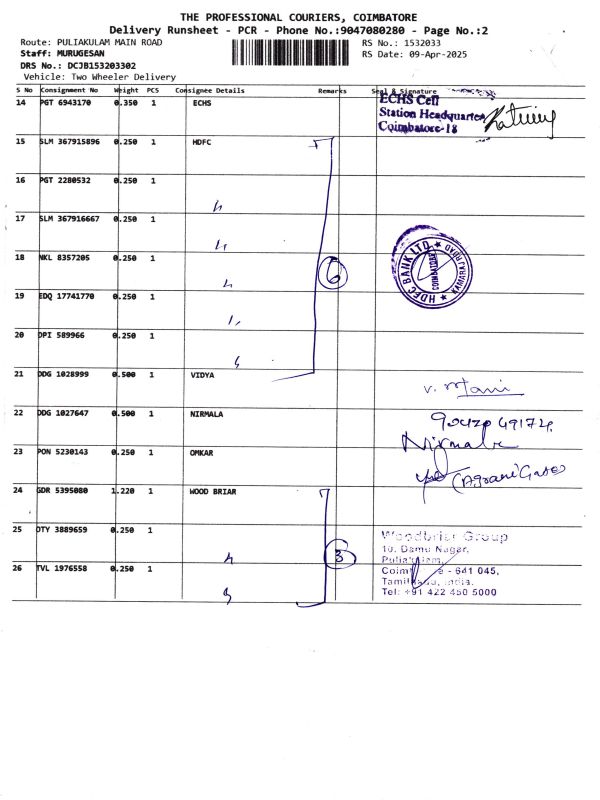 THE PROFESSIONAL COURIERS, COIMBATORE
Delivery Runsheet - PCR - Phone No.:9047080280 - Page No.:2
Route: PULIAKULAM MAIN ROAD
RS No.: 1532033
Staff: MURUGESAN
RS Date: 09-Apr-2025
DRS No.: DCJB153203302
Vehicle: Two Wheeler Delivery
S No Consignment No Weight PCS Consignee Details Remarks Seal & Signature
14 PGT 6943170 0.350 1 ECHS
ECHS Cell
Station Headquarter
Coimbatore-18
15 SLM 367915896 0.250 1 HDFC
16 PGT 2280532 0.250 1
17 SLM 367916667 0.250 1
18 NKL 8357205 0.250 1
6
HDFC BANK LTD. ★ KAMARAJ ROAD ★
COIMBATORE
19 EDQ 17741770 0.250 1
20 DPI 589966 0.250 1
21 DDG 1028999 0.500 1 VIDYA
V. Mani
22 DDG 1027647 0.500 1 NIRMALA
Nirmala
23 PON 5230143 0.250 1 OMKAR
24 GDR 5395080 1.220 1 WOOD BRIAR
25 DTY 3889659 0.250 1
3
Woodbriar Group
10, Damu Nagar,
Puliakulam,
26 TVL 1976558 0.250 1
Coimbatore - 641 045,
Tamilnadu, India.
Tel: +91 422 450 5000